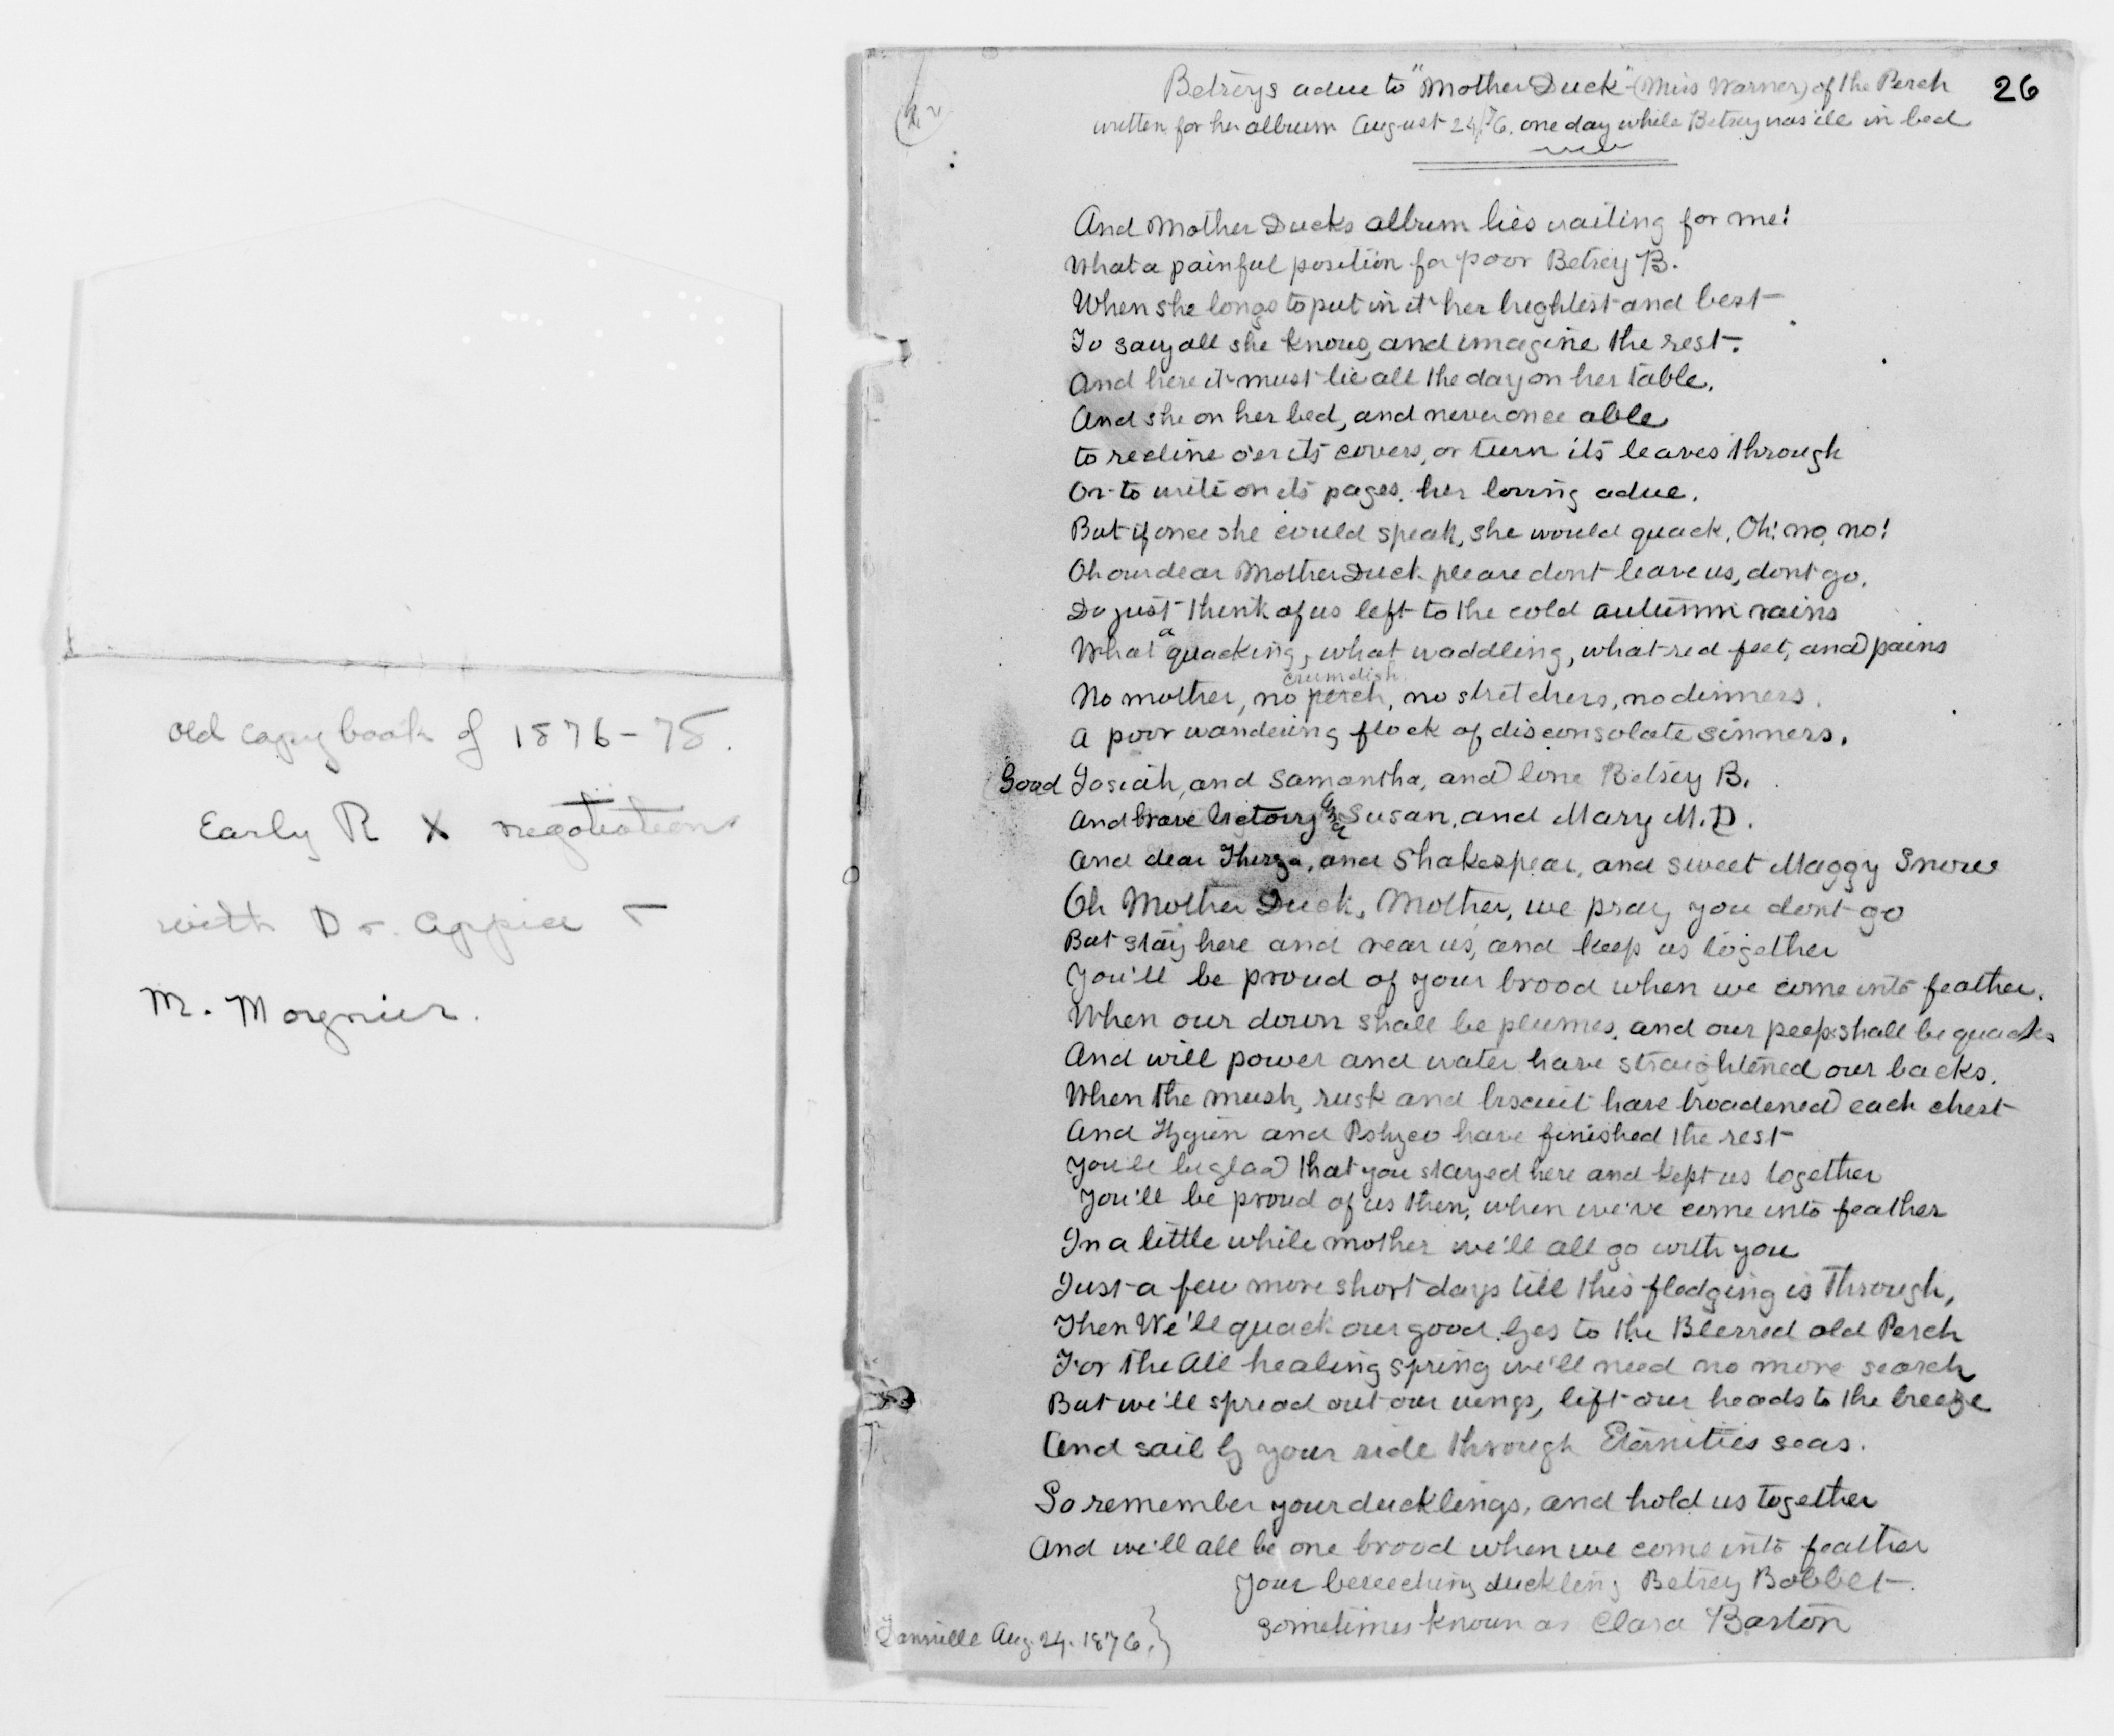 old copy book of 1876-78.
Early R X negotiations
with Dr. Appia -
M. Moynier.
26
Betseys adue to "Mother Duck" (Miss Warner) of the Perch
written for her album August 24/76. one day while Betsey was ill in bed
And Mother Ducks album lies waiting for me!
What a painful position for poor Betsey B.
When she longs to put in it her brightest and best
To say all she knows, and imagine the rest.
And here it must lie all the day on her table.
And she on her bed, and never once able
to recline o'er its covers, or turn its leaves through
Or to write on its pages, her loving adue.
But if once she could speak, she would quack, Oh! no, no!
Oh our dear Mother Duck please dont leave us, dont go.
Do just think of us left to the cold autumn rains
What a quacking, what waddling, what red feet, and pains
crumdish
No mother, no perch, no stretchers, no dinners.
A poor wandering flock of disconsolate sinners.
Good Josiah, and Samantha, and lone Betsey B.
And brave Victory Susan, and Mary M.D.
And dear Thirza, and Shakespear, and sweet Maggy Snow
Oh Mother Duck, Mother, we pray you dont go
But stay here and rear us, and keep us together
You'll be proud of your brood when we come into feather.
When our down shall be plumes, and our peeps shall be quacks
And will power and water have straightened our backs.
When the mush, rusk and biscuit have broadened each chest
And Hygien and have finished the rest
You'll be glad that you stayed here and kept us together
You'll be proud of us then, when we've come into feather
In a little while mother we'll all go with you
Just a few more short days till this fledging is through,
Then We'll quack our good byes to the Blessed old Perch
For the All healing spring we'll need no more search
But we'll spread out our wings, lift our heads to the breeze
And sail by your side through Eternities seas.
So remember your ducklings, and hold us together
And we'll all be one brood when we come into feather
Your beseeching duckling Betsey Bobbet
sometimes known as Clara Barton
Dansville Aug. 24. 1876.}